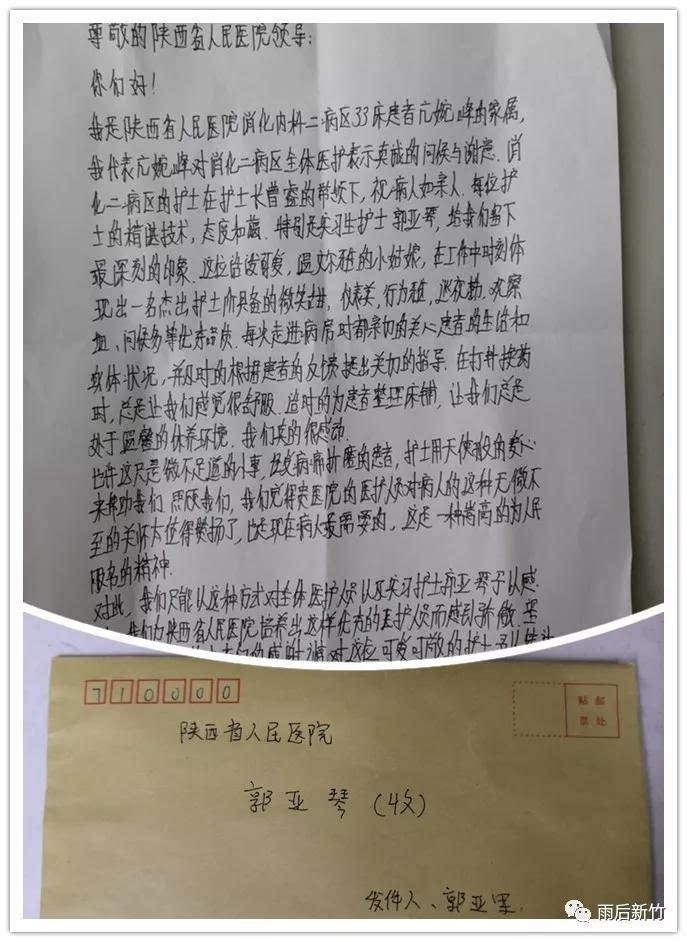 尊敬的陕西省人民医院领导:
你们好!
我是陕西省人民医院消化内科二病区33床患者亢婉峰的家属,
我代表亢婉峰对消化二病区全体医护表示真诚的问候与谢意.消
化二病区的护士在护士长曾睿的带领下,视病人如亲人.每位护
士的精湛技术,态度和蔼.特别是实习生护士郭亚琴,给我们留下
最深刻的印象.这位谐谈可爱,温文尔雅的小姑娘,在工作中时刻体
现出一名杰出护士所具备的微笑甜,仪表美,行为雅,巡视勤.观察
细、问候多等优秀品质.每次走进病房时都亲切的关心患者的生活和
身体状况,并及时的根据患者的反馈提出关切的指导.在打针换药
时,总是让我们感觉很舒服.适时的为患者整理床铺,让我们总是
处于温馨的休养环境.我们真的很感动.
也许这只是微不足道的小事,但受病痛折磨的患者,护士用天使般的爱心
来帮助我们照顾我们,我们觉得贵医院的医护人员对病人的这种无微不
至的关怀太值得赞扬了,也是现在病人最需要的,这是一种崇高的为人民
服务的精神.
对此,我们只能以这种方式对全体医护人员以及实习护士郭亚琴予以感
我们为陕西省人民医院培养出这样优秀的医护人员而感到骄傲.
的感谢,请对这位可爱可敬的护士予以
710000
贴邮
票处
陕西省人民医院
郭亚琴(收)
发件人、郭亚
雨后新竹